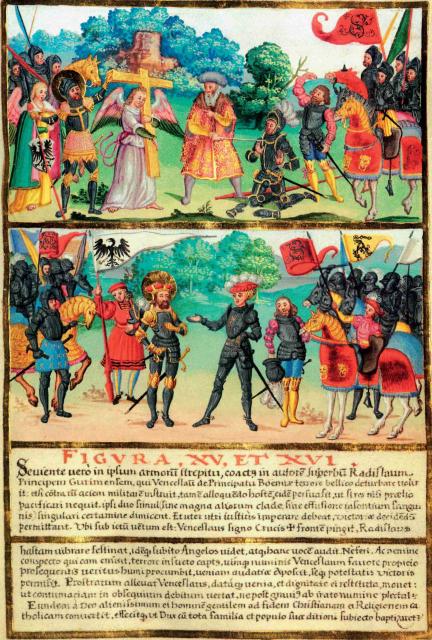 FIGVRA, XV, ET XVI,
Seviente vero in ipsum armorū strepitu, coacto in autorē superbū Radislaum
Principem Gurimensem, qui Venceslaū de Principatu Boemiæ terrore bellico deturbare voluit
cōtra cū aciem militarē instruit, tamē alloquēdo hostē, eidē persuasit, ut si res nisi prælio
pacificari nequit, ipsi duo simul sine magna aliorum clade, sine effusione insontium sangui-
nis singulari certamine dimicent. Et uter utri
permittant. Vbi sub ictū vētum est: Venceslaus signo Crucis fronte pingit, Radislaus
hastam vibrare festinat, idēq; subito Angelos videt, atq; hanc vocē audit. Ne feri. Ac nemine
conspecto qui eam emisit, terrore insueto captus, Venceslaum favore proprio
prosequentis veritus humi procumbit, veniam audatiæ deposcit, seq; potestatis Victori
permisit. Prostratum allevat Venceslaus, data q; venia, et dignitate restituta, monet:
ut continuant in obsequium debitum vertat, ne post gravius ab irato numine plectat.
Eundem à Deo alienissimum et hominē gentilem ad fidem Christianam et Religionem ca-
tholicam convertit, effecitq; ut Dux cū tota familia et populo suæ ditioni subiecto baptizaret.